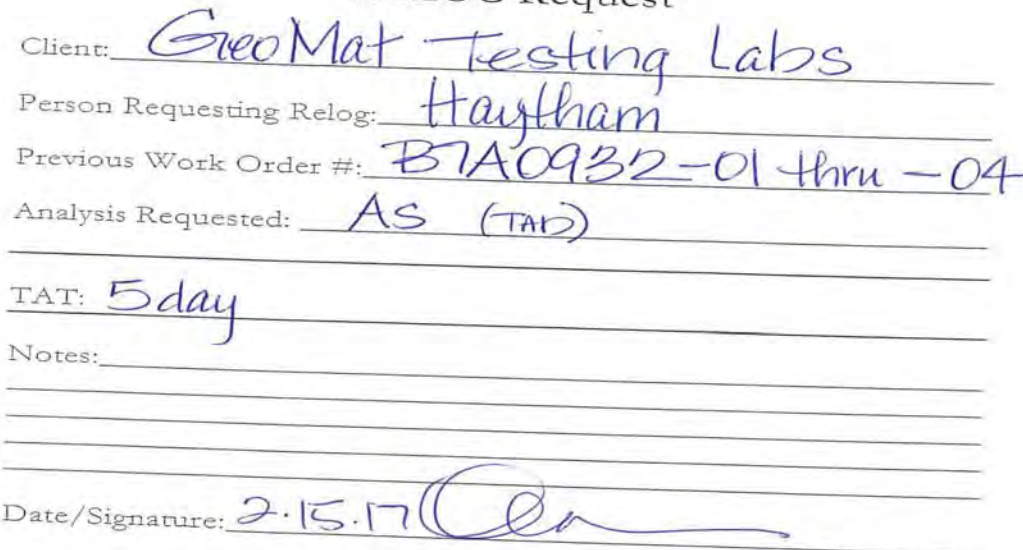 Request
Client: GeoMat Testing Labs
Person Requesting Relog: Haytham
Previous Work Order #: B7A0932-01 thru -04
Analysis Requested: AS (TAD)
TAT: 5 day
Notes:
Date/Signature: 2.15.17